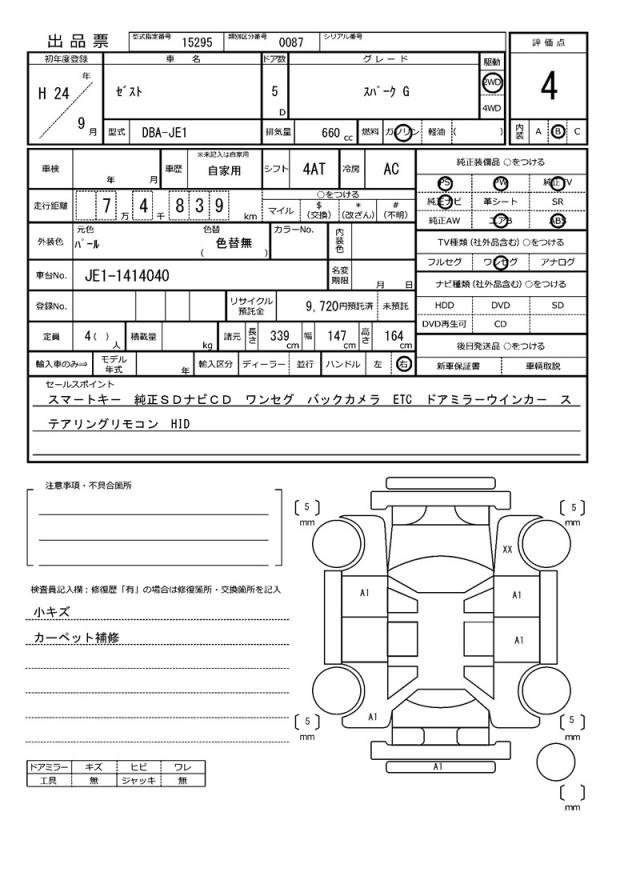 出品票 型式指定番号 15295 類別区分番号 0087 シリアル番号
評価点
4
初年度登録 車名 ドア数 グレード 駆動
H 24 年 9 月 ｾﾞｽﾄ 5 D ｽﾊﾟｰｸ G 2WD
4WD
型式 DBA-JE1 排気量 660 cc 燃料 ガソリン 軽油 ( )
内装 A B C
車検 年 月 車歴 ※未記入は自家用 自家用 シフト 4AT 冷房 AC
走行距離 7 万 4 千 8 3 9 km
○をつける
マイル $(交換) *(改ざん) #(不明)
外装色 元色 ﾊﾟｰﾙ 色替 ( 色替無 ) カラーNo. 内装色
車台No. JE1-1414040 名変期限 月 日
登録No. リサイクル預託金 9,720円預託済 未預託
定員 4 ( ) 人 積載量 kg 諸元 長さ 339 cm 幅 147 cm 高さ 164 cm
輸入車のみ⇒ モデル年式 年 輸入区分 ディーラー 並行 ハンドル 左 右
純正装備品 ○をつける
PS PW 純正TV
純正ナビ 革シート SR
純正AW エアB ABS
TV種類 (社外品含む) ○をつける
フルセグ ワンセグ アナログ
ナビ種類 (社外品含む) ○をつける
HDD DVD SD
DVD再生可 CD
後日発送品 ○をつける
新車保証書 車輌取説
セールスポイント
スマートキー 純正ＳＤナビＣＤ ワンセグ バックカメラ ETC ドアミラーウインカー ス
テアリングリモコン HID
注意事項・不具合箇所
検査員記入欄：修復歴「有」の場合は修復箇所・交換箇所を記入
小キズ
カーペット補修
ドアミラー キズ ヒビ ワレ
工具 無 ジャッキ 無
〔 5 〕 mm
〔 5 〕 mm
XX
A1
A1
A1
A1
〔 5 〕 mm
〔 5 〕 mm
A1
〔 〕 mm